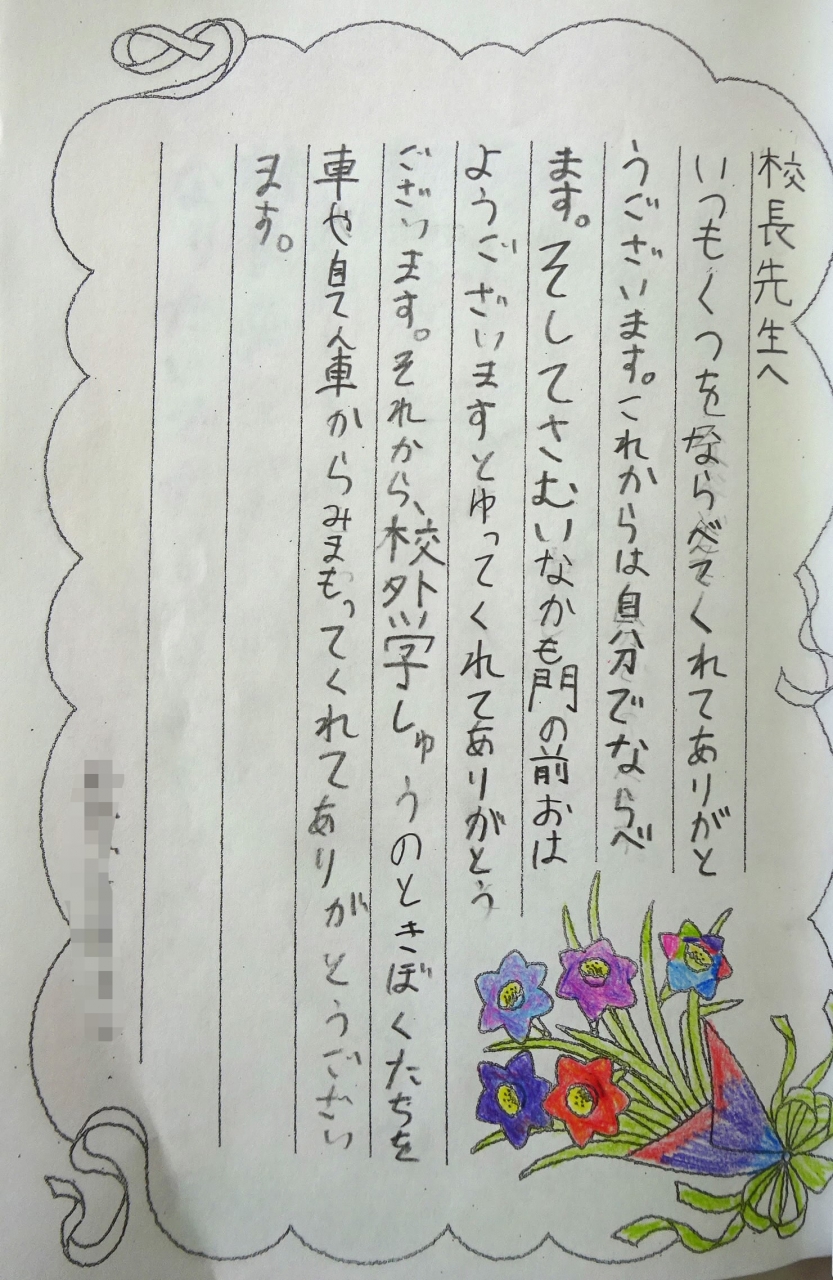 校長先生へ
いつもくつをならべてくれてありがと
うございます。これからは自分でならべ
ます。そしてさむいなかも門の前おは
ようございますとゆってくれてありがとう
ございます。それから、校外学しゅうのときぼくたちを
車や自てん車からみまもってくれてありがとうござい
ます。